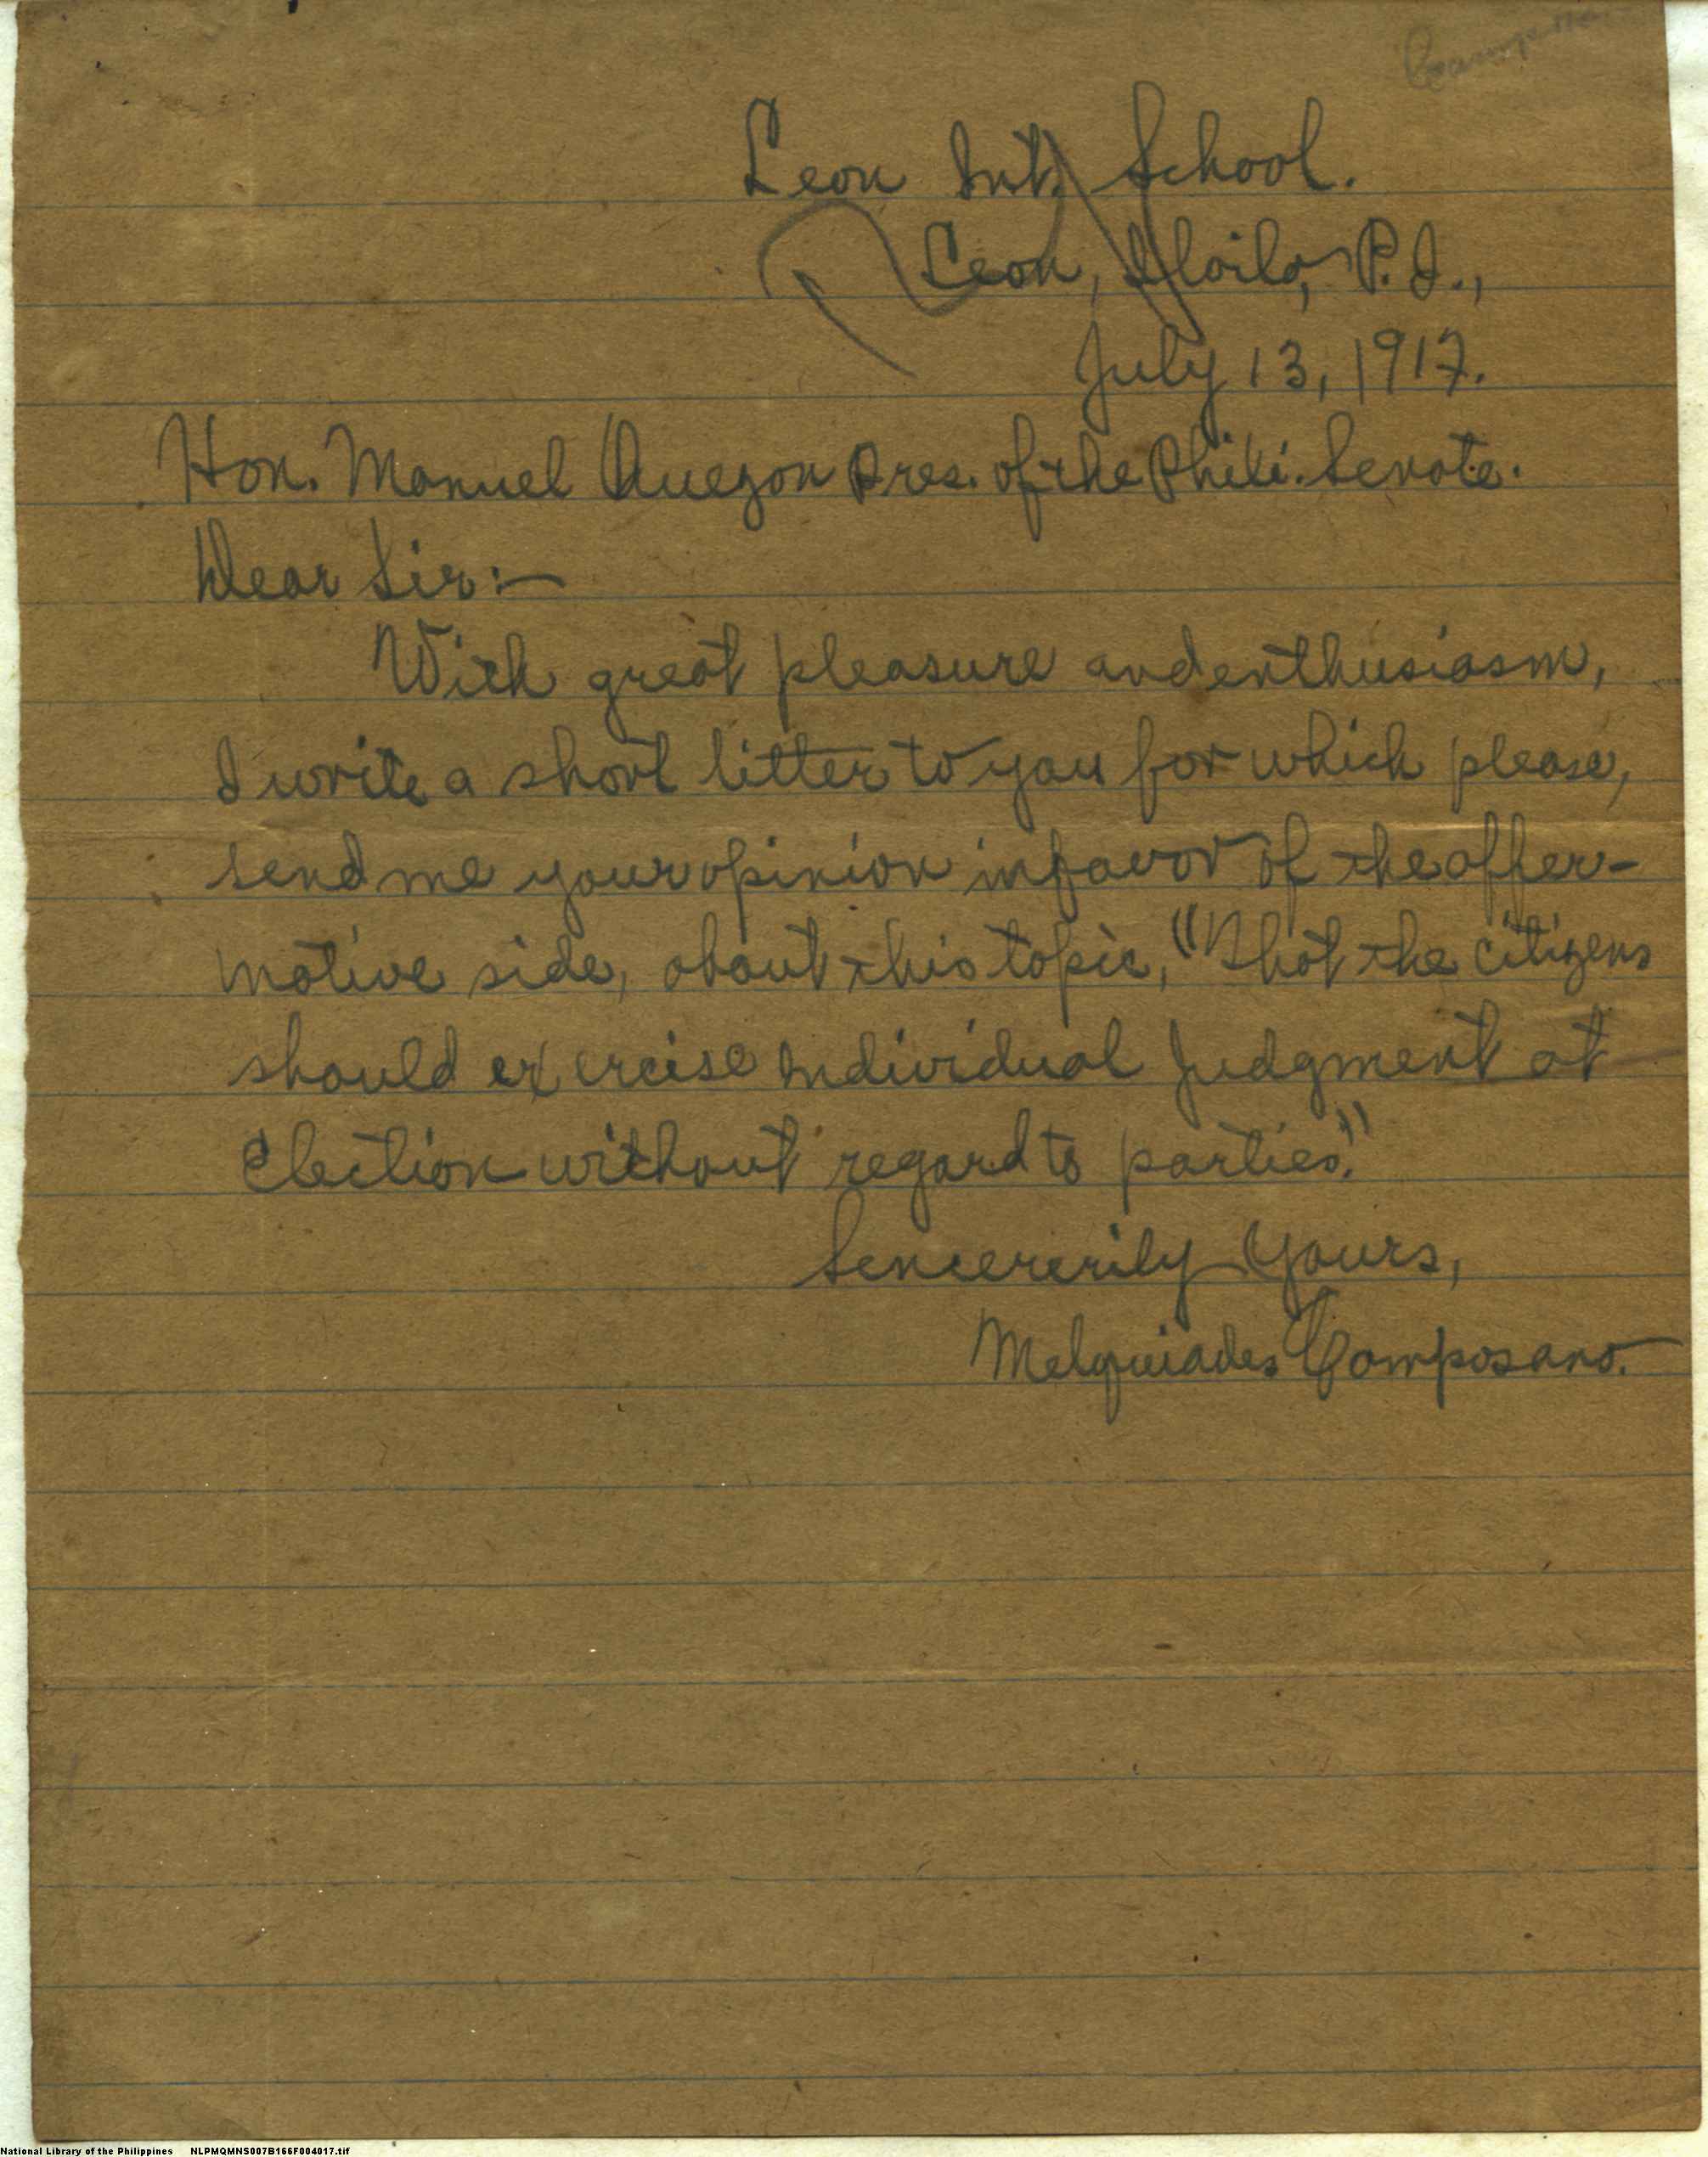 Leon Int. School.
Leon, Iloilo, P.I.,
July 13, 1917.
Hon. Manuel Quezon Pres. of the Phili. Senate.
Dear Sir:—
With great pleasure and enthusiasm,
I write a short litter to you for which please,
send me your opinion in favor of the affer-
mative side, about this topic, "That the citizens
should exercise individual judgment at
Election without regard to parties."
Sencererily Yours,
Melquiades Composano.
National Library of the Philippines NLPMQMNS007B166F004017.tif